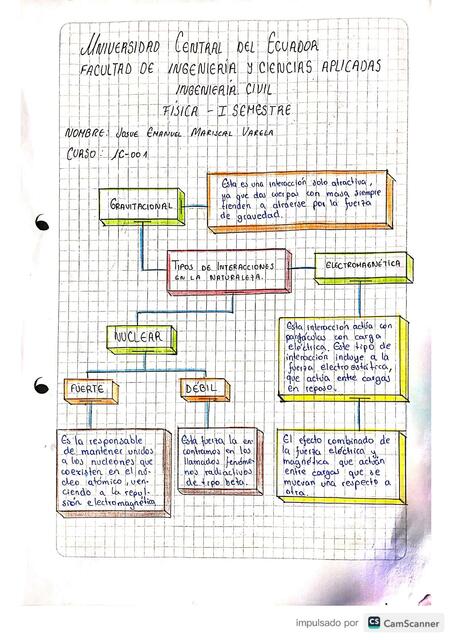 UNIVERSIDAD CENTRAL DEL ECUADOR
FACULTAD DE INGENIERÍA Y CIENCIAS APLICADAS
INGENIERÍA CIVIL
FÍSICA - I SEMESTRE
NOMBRE: JOSUE EMANUEL MARISCAL VARELA
CURSO: IC-001
GRAVITACIONAL
Esta es una interacción solo atractiva,
ya que dos cuerpos con masa siempre
tienden a atraerse por la fuerza
de gravedad.
TIPOS DE INTERACCIONES
EN LA NATURALEZA.
ELECTROMAGNÉTICA
Esta interacción actúa con
partículas con carga
eléctrica. Este tipo de
interacción incluye a la
fuerza electroestática,
que actúa entre cargas
en reposo.
El efecto combinado de
la fuerza eléctrica y
magnética que actúan
entre cargas que se
muevan una respecto a
otra.
NUCLEAR
FUERTE
DÉBIL
Es la responsable
de mantener unidos
a los nucleones que
coexisten en el nú-
cleo atómico, ven-
ciendo a la repul-
sión electromagnética
Esta fuerza la en-
contramos en los
llamados fenóme-
nos radiactivos
de tipo beta.
impulsado por CS CamScanner